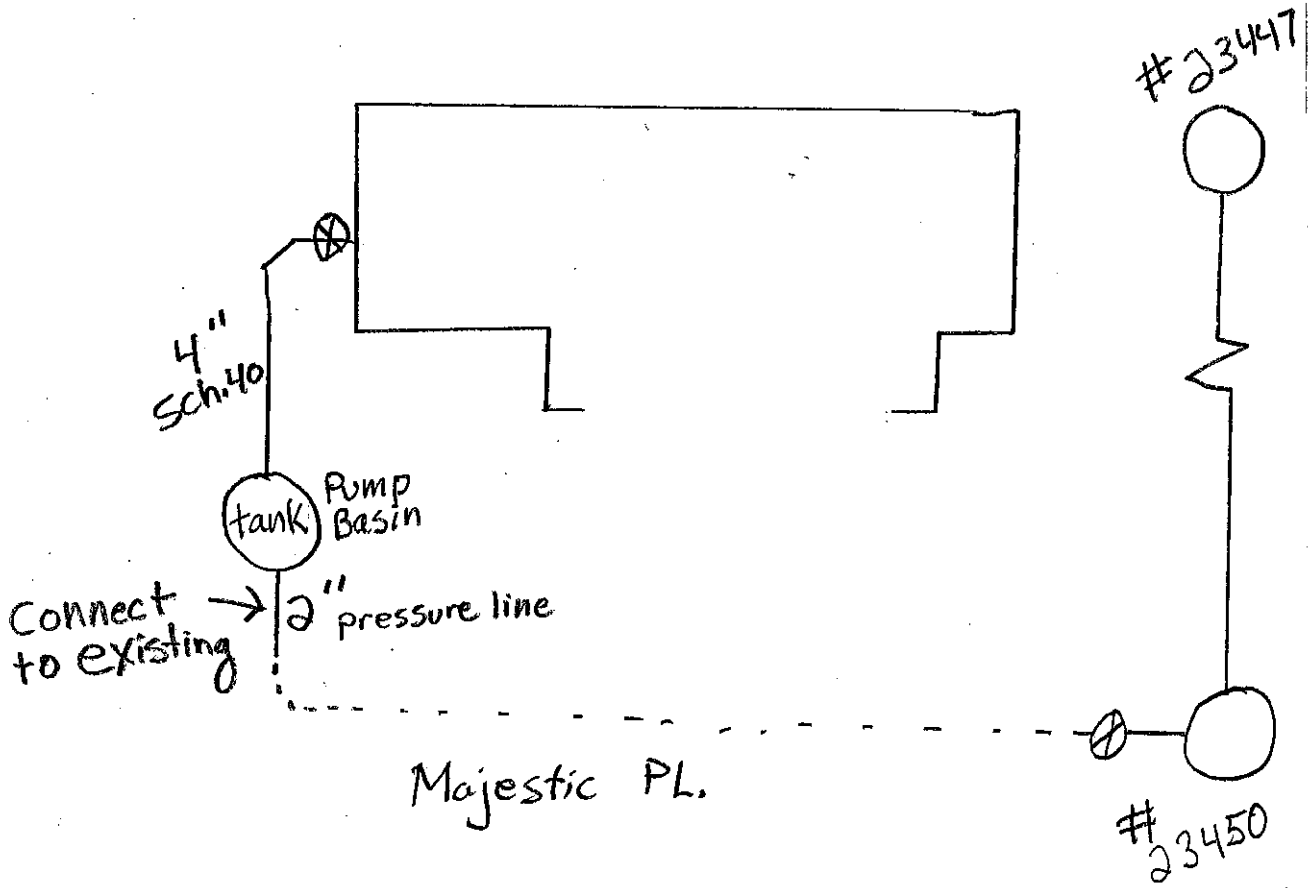 # 23447
4"
Sch.40
tank
Pump
Basin
Connect
to existing
2" pressure line
Majestic PL.
#
23450